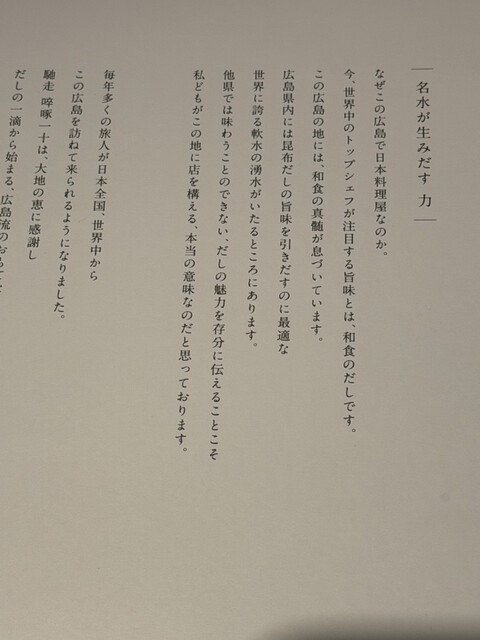 名水が生みだす 力
なぜこの広島で日本料理屋なのか。
今、世界中のトップシェフが注目する旨味とは、和食のだしです。
この広島の地には、和食の真髄が息づいています。
広島県内には昆布だしの旨味を引きだすのに最適な
世界に誇る軟水の湧水がいたるところにあります。
他県では味わうことのできない、だしの魅力を存分に伝えることこそ
私どもがこの地に店を構える、本当の意味なのだと思っております。
毎年多くの旅人が日本全国、世界中から
この広島を訪ねて来られるようになりました。
馳走 啐啄一十は、大地の恵に感謝し
だしの一滴から始まる、広島流のおもて